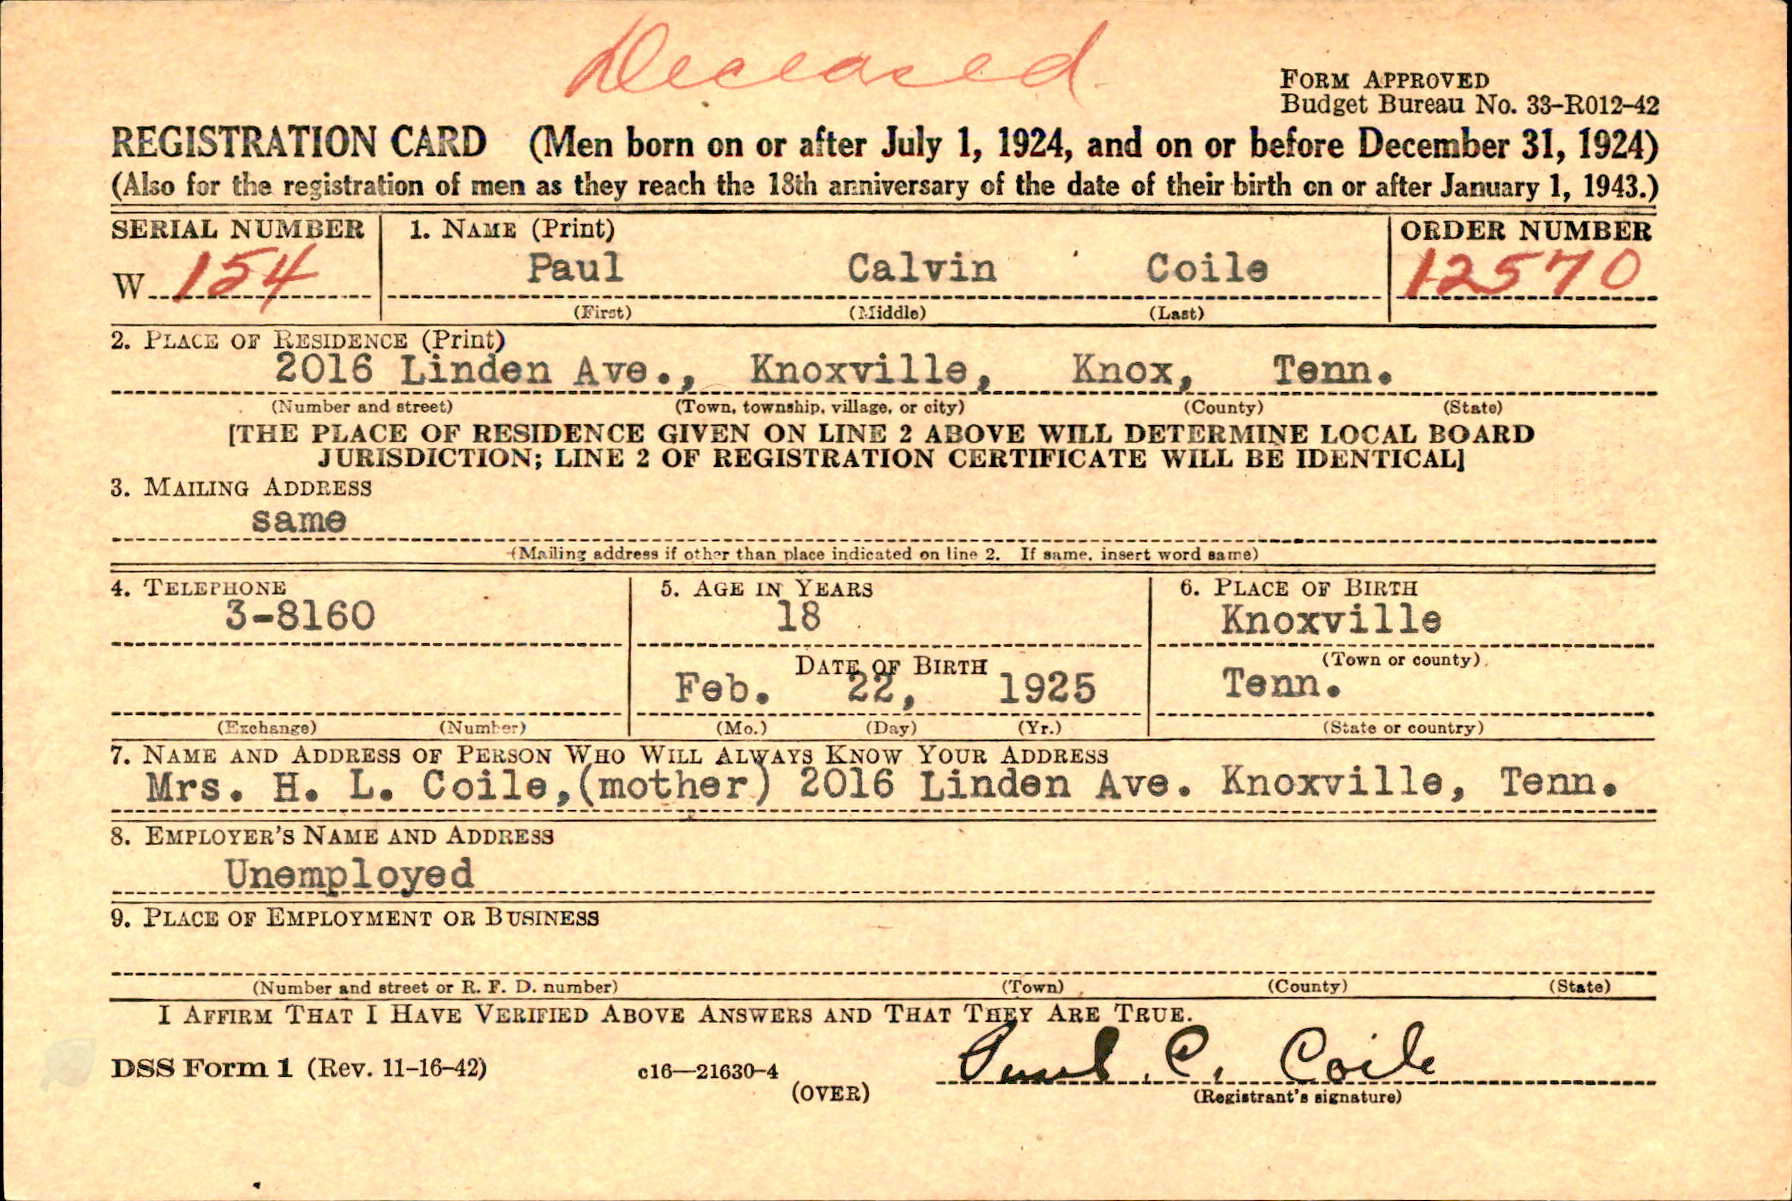 Deceased
FORM APPROVED
Budget Bureau No. 33-R012-42
REGISTRATION CARD (Men born on or after July 1, 1924, and on or before December 31, 1924)
(Also for the registration of men as they reach the 18th anniversary of the date of their birth on or after January 1, 1943.)
SERIAL NUMBER 1. NAME (Print) ORDER NUMBER
W 154 Paul Calvin Coile 12570
(First) (Middle) (Last)
2. PLACE OF RESIDENCE (Print)
2016 Linden Ave., Knoxville, Knox, Tenn.
(Number and street) (Town, township, village, or city) (County) (State)
[THE PLACE OF RESIDENCE GIVEN ON LINE 2 ABOVE WILL DETERMINE LOCAL BOARD
JURISDICTION; LINE 2 OF REGISTRATION CERTIFICATE WILL BE IDENTICAL]
3. MAILING ADDRESS
same
(Mailing address if other than place indicated on line 2. If same, insert word same)
4. TELEPHONE 5. AGE IN YEARS 6. PLACE OF BIRTH
3-8160 18 Knoxville
DATE OF BIRTH (Town or county)
Feb. 22, 1925 Tenn.
(Exchange) (Number) (Mo.) (Day) (Yr.) (State or country)
7. NAME AND ADDRESS OF PERSON WHO WILL ALWAYS KNOW YOUR ADDRESS
Mrs. H. L. Coile,(mother) 2016 Linden Ave. Knoxville, Tenn.
8. EMPLOYER'S NAME AND ADDRESS
Unemployed
9. PLACE OF EMPLOYMENT OR BUSINESS
(Number and street or R. F. D. number) (Town) (County) (State)
I AFFIRM THAT I HAVE VERIFIED ABOVE ANSWERS AND THAT THEY ARE TRUE.
DSS Form 1 (Rev. 11-16-42) c16—21630-4 Paul C. Coile
(OVER) (Registrant's signature)